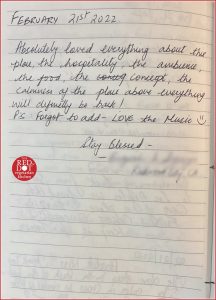 FEBRUARY 21ST 2022
Absolutely loved everything about this
place, the hospitality, the ambience,
the food, the concept, the
calmness of the place above everything
will definetly be back!
PS: Forgot to add - LOVE the Music
Stay Blessed -
RED DOT
vegetarian
kitchen